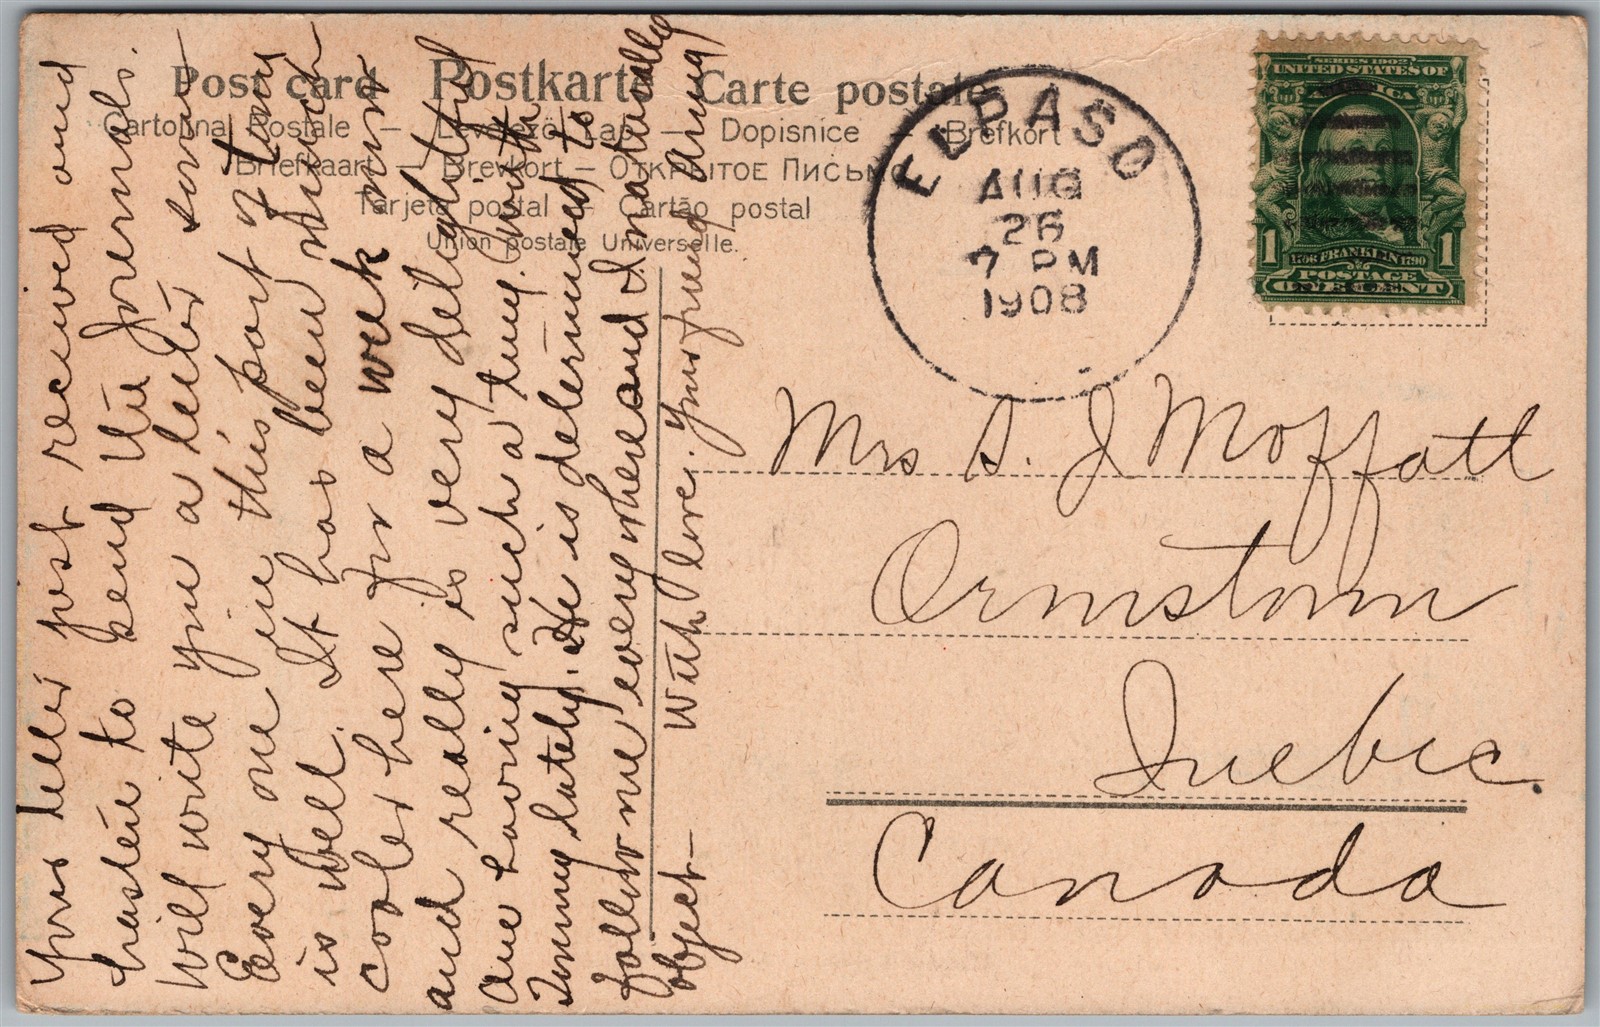 Post card Postkarte Carte postale
Cartolina Postale — Levelező Lap — Dopisnice — Brefkort
Briefkaart — Brevkort — Открытое Письмо
Tarjeta postal — Cartão postal
Union postale Universelle.
EL PASO
AUG
26
7 PM
1908
SERIES 1902
UNITED STATES OF
AMERICA
1 1706 FRANKLIN 1790 1
POSTAGE
ONE CENT
Mrs A. J Moffatt
Ormstown
Quebec.
Canada
Your letter just received and
hasten to send the
will write you a letter soon
Every one in this part of
is well. It has been much
cooler here for a week now
and really is very delightful
Am having such a time with
Jimmy lately. He is determined to
follow me everywhere and I naturally
object— With love. Your